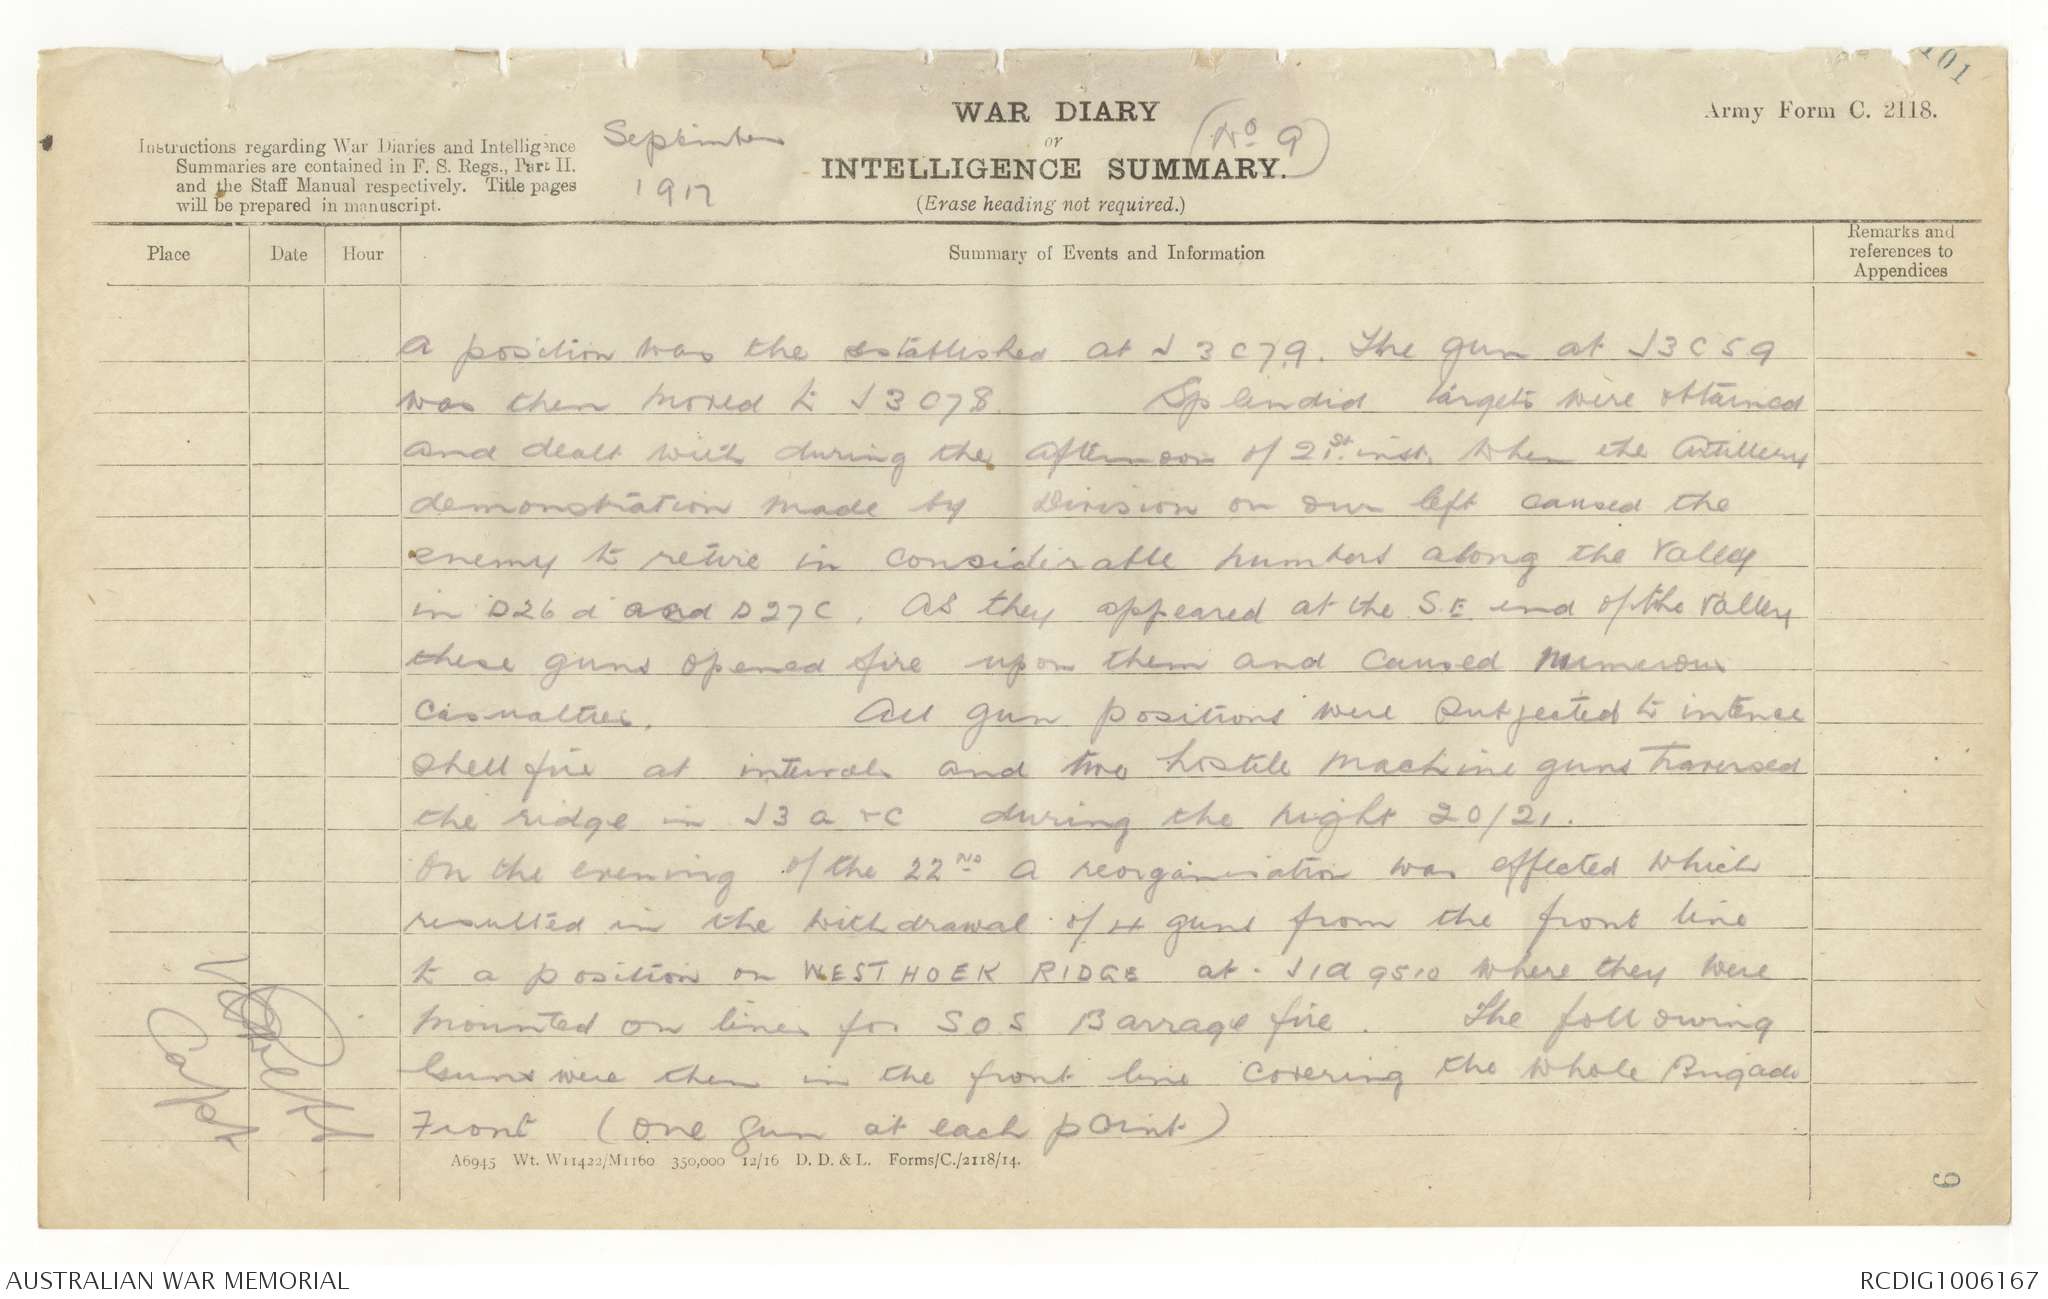 101
Army Form C. 2118.
WAR DIARY
or
INTELLIGENCE SUMMARY.
(Erase heading not required.)
(No 9)
September
1917
Instructions regarding War Diaries and Intelligence
Summaries are contained in F. S. Regs., Part II.
and the Staff Manual respectively. Title pages
will be prepared in manuscript.
Place
Date
Hour
Summary of Events and Information
Remarks and
references to
Appendices
A position was the established at J3C79. The gun at J3C59
was then moved to J3C78. Splendid targets were obtained
and dealt with during the afternoon of 21st. inst. when the Artillery
demonstration made by Division on our left caused the
enemy to retire in considerable numbers along the Valley
in D26d and D27C. As they appeared at the S.E. end of the Valley
these guns opened fire upon them and caused numerous
casualties. All gun positions were subjected to intence
shell fire at intervals and two hostile machine guns traversed
the ridge in J3a & C during the night 20/21.
On the evening of the 22nd a reorganisation was effected which
resulted in the withdrawal of 4 guns from the front line
to a position on WESTHOEK RIDGE at J1d9510 where they were
mounted on lines for SOS Barrage fire. The following
Guns were then in the front line covering the whole Brigade
Front (one gun at each point)
Capt
A6945 Wt. W11422/M1160 350,000 12/16 D. D. & L. Forms/C./2118/14.
6
AUSTRALIAN WAR MEMORIAL
RCDIG1006167